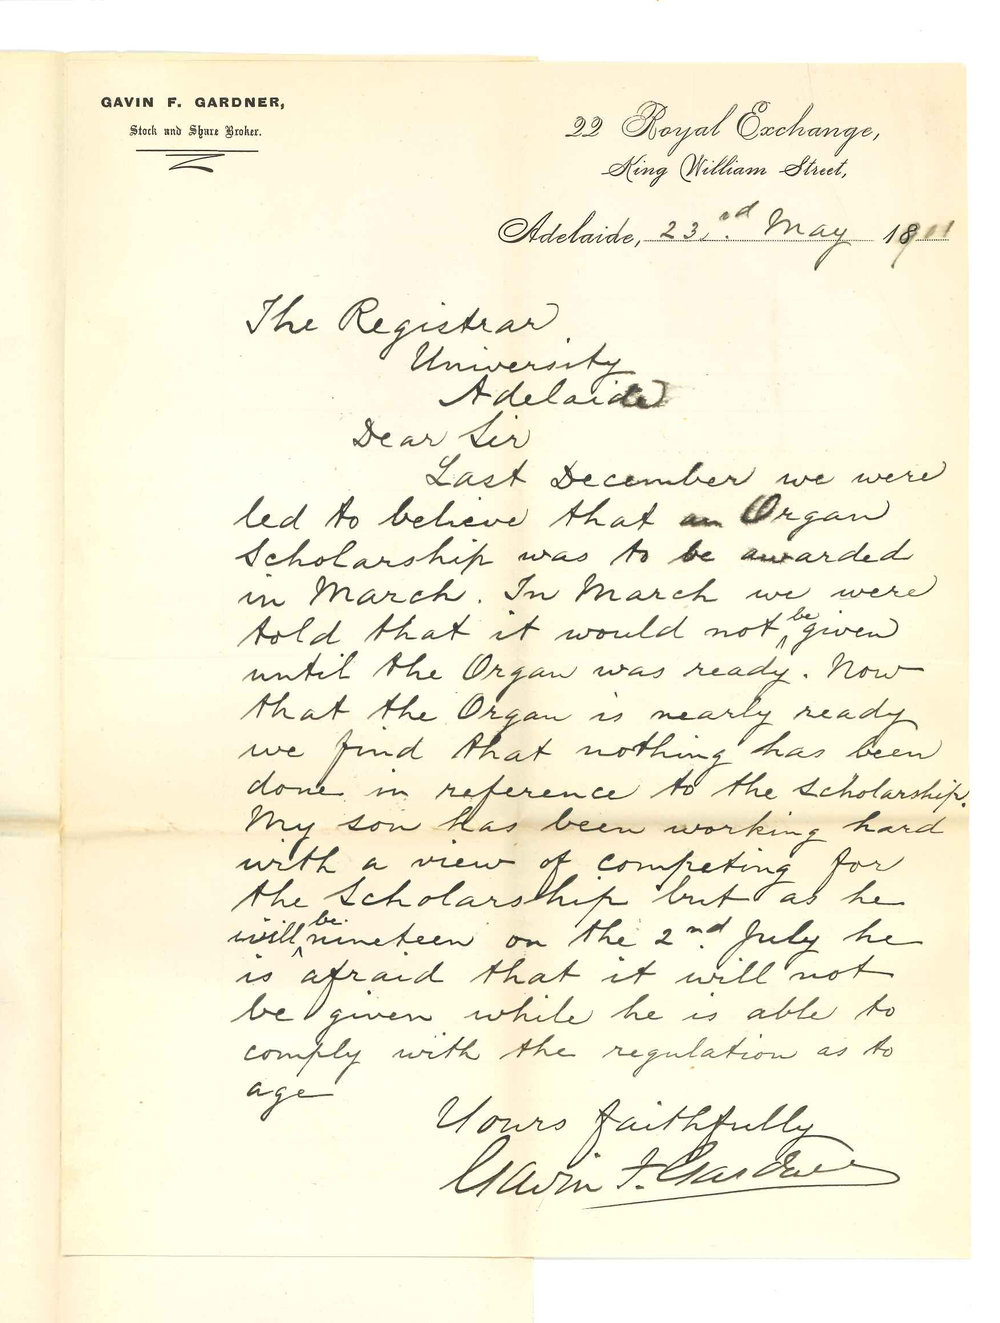 GAVIN F. GARDNER,
Stock and Share Broker.
22 Royal Exchange,
King William Street,
Adelaide, 23rd May 1901
The Registrar
University
Adelaide
Dear Sir
Last December we were
led to believe that an Organ
Scholarship was to be awarded
in March. In March we were
told that it would not be given
until the Organ was ready. Now
that the Organ is nearly ready
we find that nothing has been
done in reference to the Scholarship.
My son has been working hard
with a view of competing for
the Scholarship but as he
will be nineteen on the 2nd July he
is afraid that it will not
be given while he is able to
comply with the regulation as to
age
Yours faithfully
Gavin F. Gardner